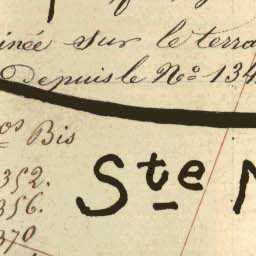 inée sur le terra
Depuis le No 134
os Bis
352.
356.
370
Ste